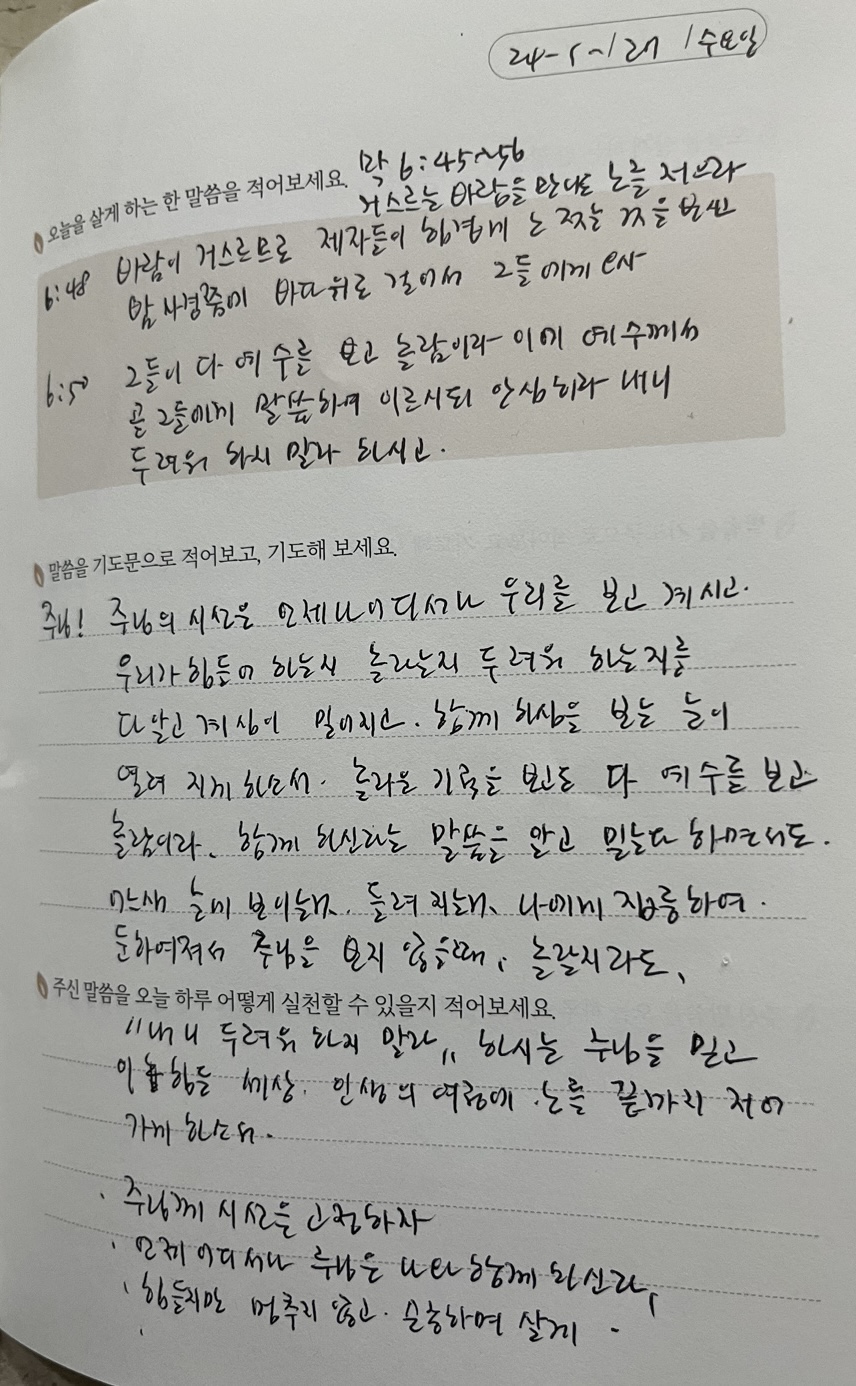 24-5-/ 수요일
막 6:45~56
오늘을 살게 하는 한 말씀을 적어보세요.
거스르는 바람을 만나도 노를 저으라
6:48 바람이 거스르므로 제자들이 힘겹게 노 젓는 것을 보시고
밤 사경쯤에 바다위로 걸어서 그들에게 오사
6:50 그들이 다 예수를 보고 놀람이라 이에 예수께서
곧 그들에게 말씀하여 이르시되 안심하라 내니
두려워 하지 말라 하시고.
말씀을 기도문으로 적어보고, 기도해 보세요.
주님! 주님의 시선은 언제나 어디서나 우리를 보고 계시고.
우리가 힘들어 하는지 놀라는지 두려워 하는지를
다 알고 계심이 믿어지고. 함께 하심을 보는 눈이
열려 지게 하소서. 놀라운 기적을 보고도 다 예수를 보고
놀람이라. 함께 하신라는 말씀을 알고 믿는다 하면서도.
눈에 보이는데. 들려 지는데. 나에게 집중하여.
둔하여져서 주님을 보지 않을때, 놀랄지라도,
주신 말씀을 오늘 하루 어떻게 실천할 수 있을지 적어보세요.
"내니 두려워 하지 말라" 하시는 주님을 믿고
이 힘들 세상. 인생의 여정에 노를 끝까지 저어
가게 하소서.
· 주님께 시선을 고정하자
· 언제 어디서나 주님은 나와 함께 하신다,
· 힘들지만 멈추지 않고. 순종하며 살게 -